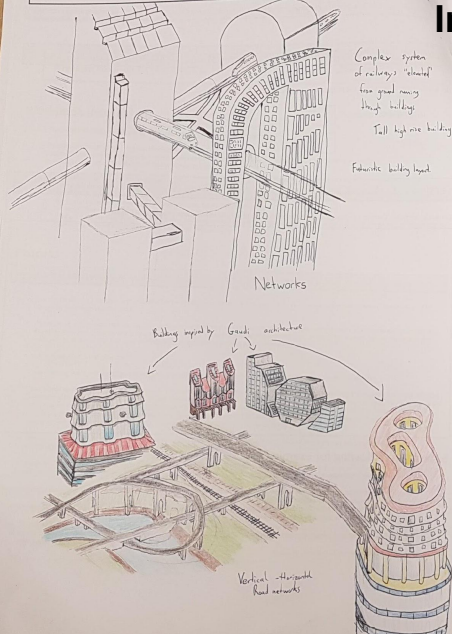 In
Complex system
of railways "elevated"
from ground running
though buildings
Tall high rise building
Futuristic building layout
Networks
Buildings inspired by Gaudi architecture
Vertical - Horizontal
Road networks